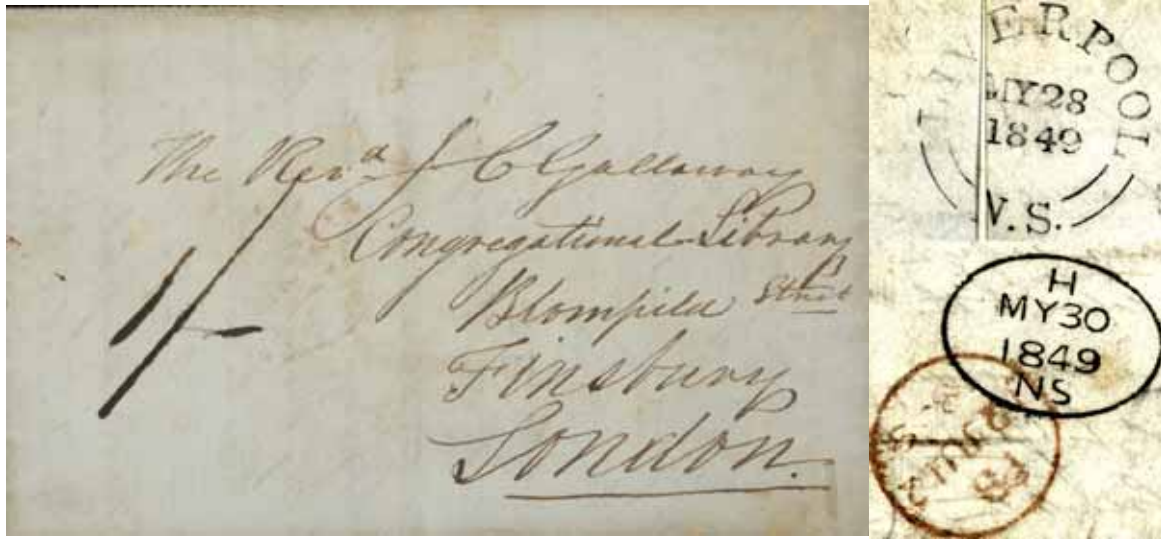 The Revd J C Gallaway
Congregational Library
Blomfield Street
Finsbury
London.
1/-
LIVERPOOL
MY28
1849
V.S.
H
MY30
1849
NS